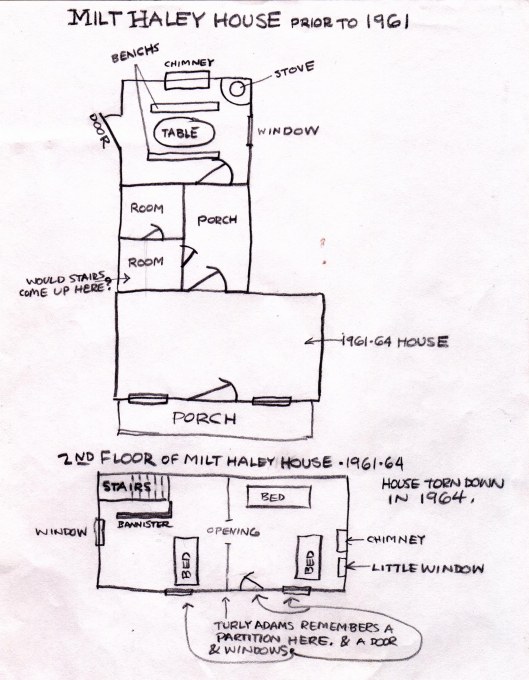 MILT HALEY HOUSE PRIOR TO 1961
BENCHS
CHIMNEY
STOVE
DOOR
TABLE
WINDOW
ROOM
PORCH
ROOM
WOULD STAIRS
COME UP HERE?
1961-64 HOUSE
PORCH
2ND FLOOR OF MILT HALEY HOUSE - 1961-64
HOUSE TORN DOWN
IN 1964.
STAIRS
BED
BANNISTER
WINDOW
OPENING
CHIMNEY
BED
BED
LITTLE WINDOW
TURLY ADAMS REMEMBERS A
PARTITION HERE. & A DOOR
& WINDOWS